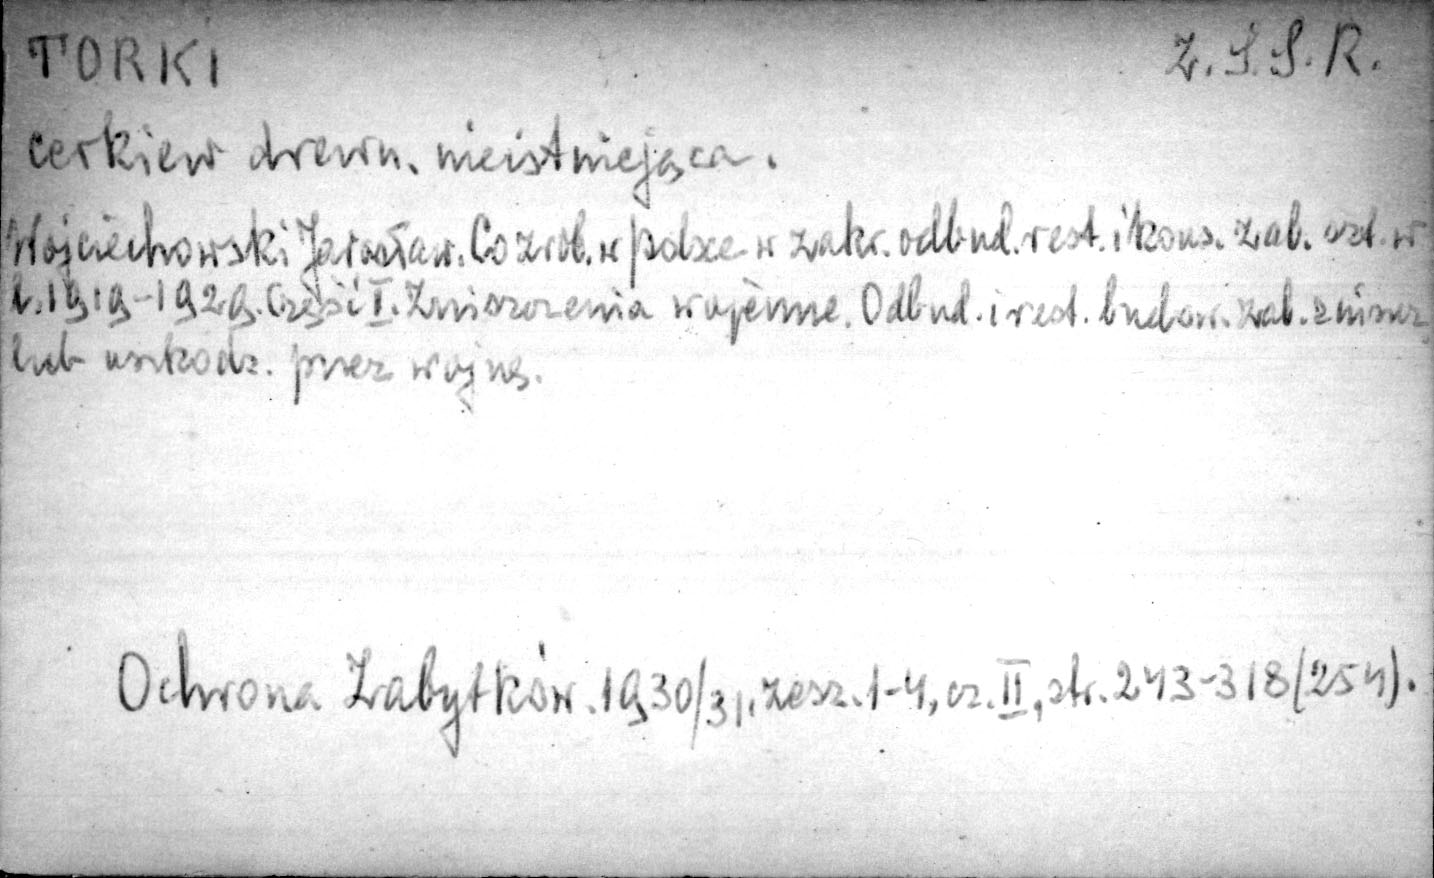 TORKI
Z.S.S.R.
cerkiew drewn. nieistniejąca.
Wojciechowski Jarosław. Co zrob. w Polsce w zakr. odbud. rest. i kons. zab. szt. w
l. 1919-1929. Część I. Zniszczenia wojenne. Odbud. i rest. budow. zab. zniszcz
lub uszkodz. przez wojnę.
Ochrona Zabytków. 1930/31, zesz. 1-4, cz. II, str. 243-318 (254).